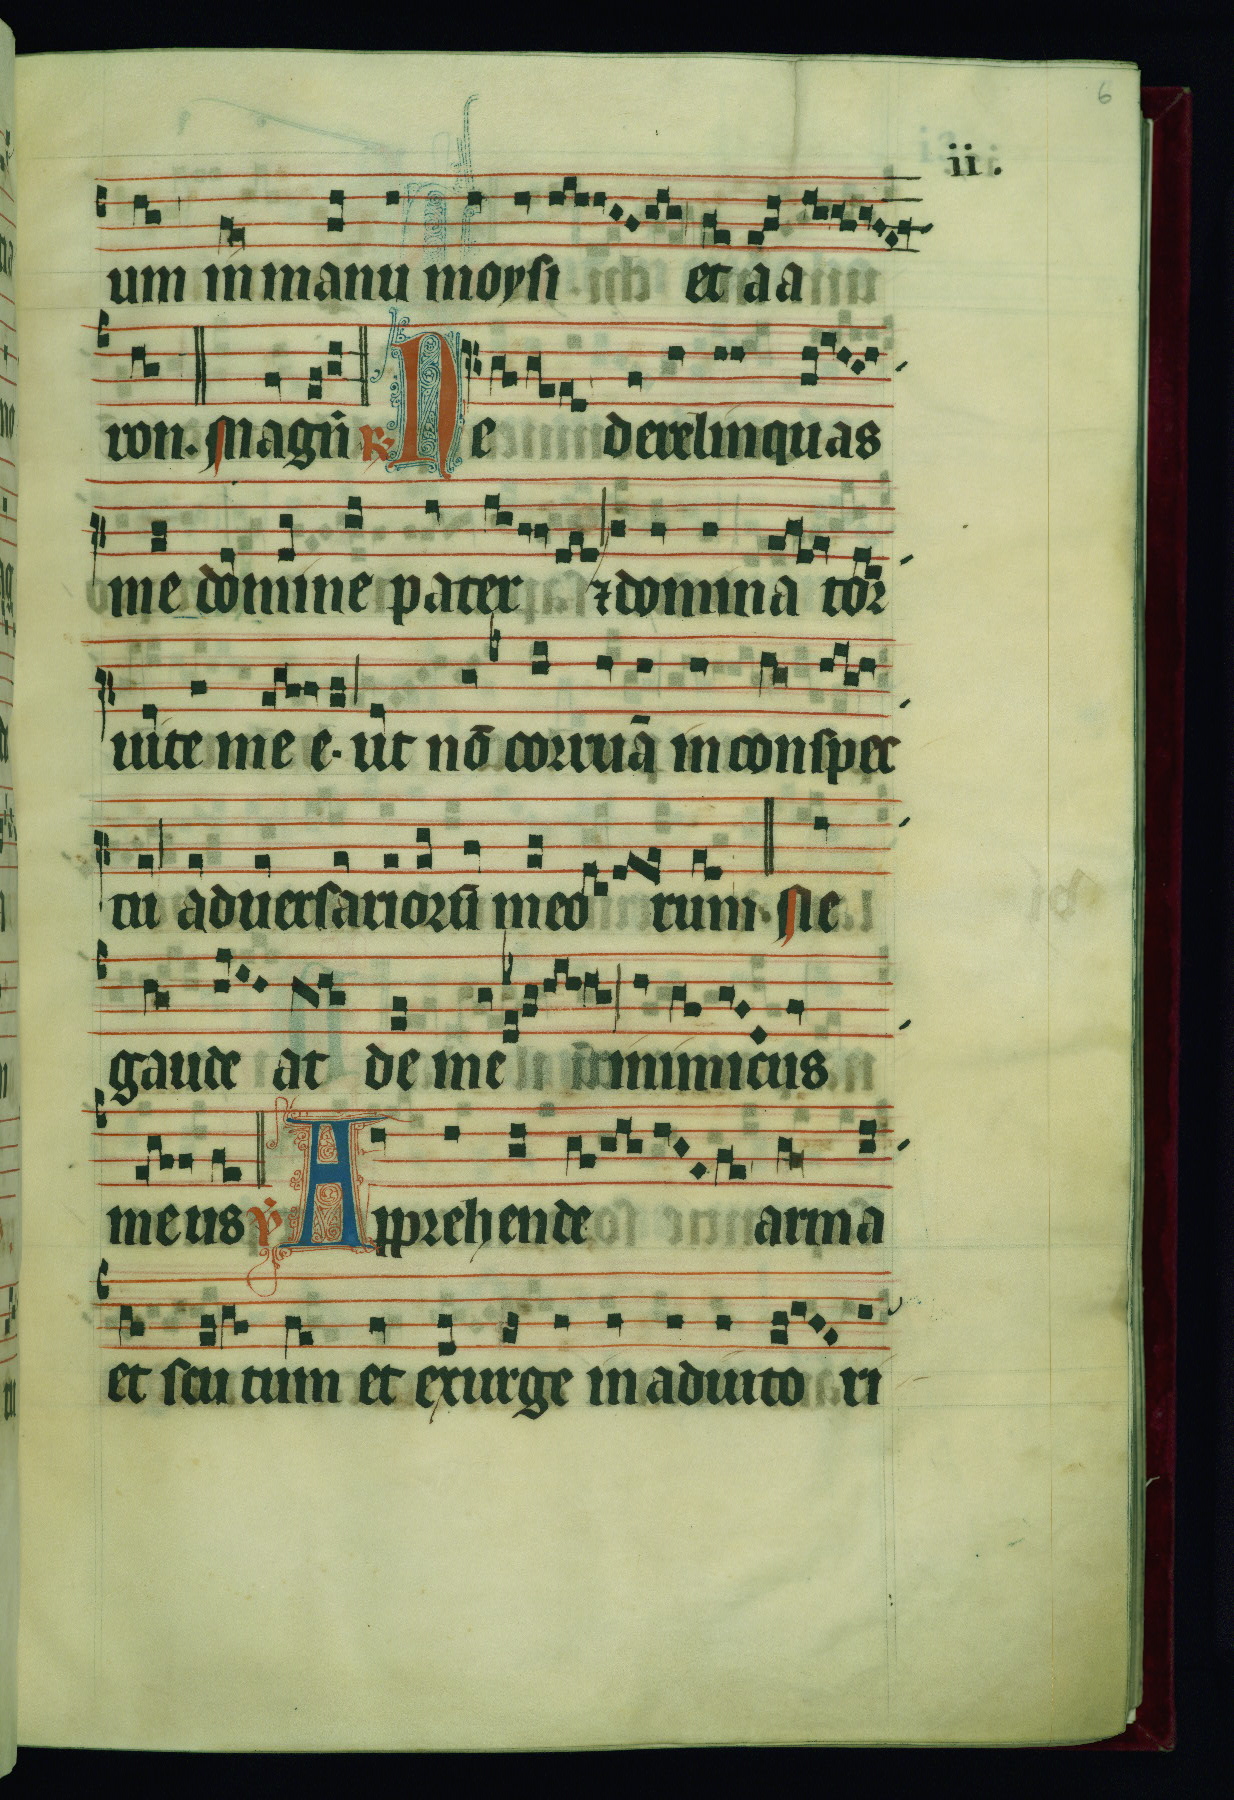 6
ii.
um in manu moysi et aa
ron. Magnͥ ℟ Ne derelinquas
me domine pater ⁊ domina tor
uite me e. ut nō corruā in conspec
tu aduersariorū meo rum. Ne
gaude at de me inimicus
meus ℣ Apprehende arma
et scutum et exurge in adiuto ri